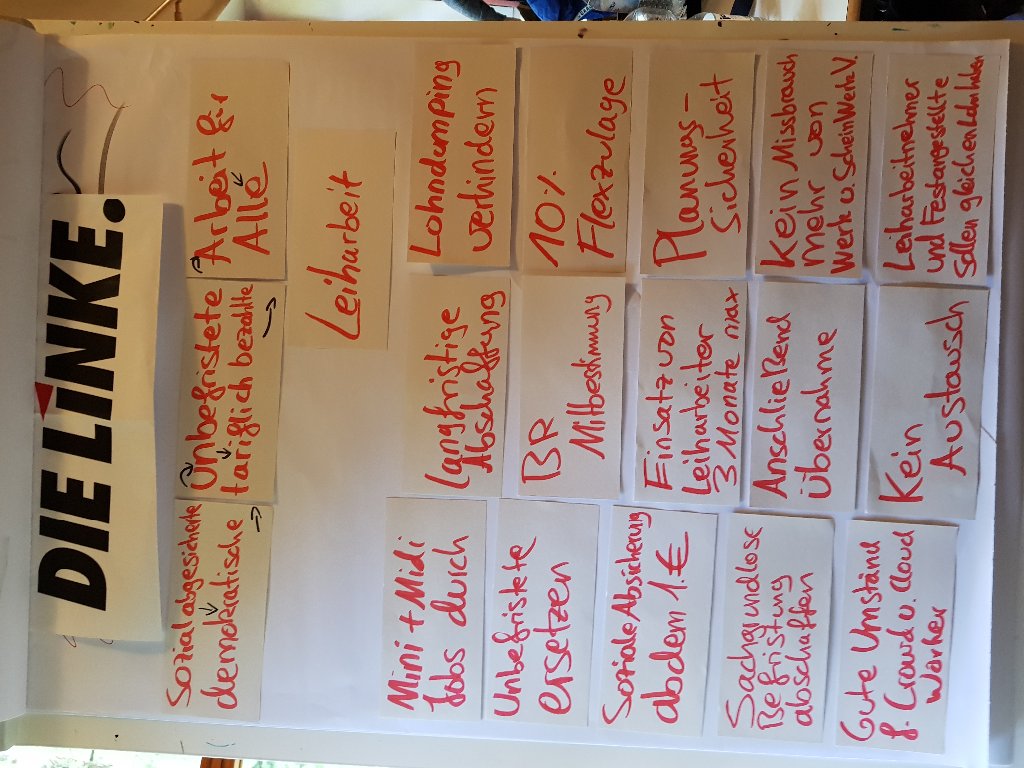 DIE LINKE.
Sozial abgesicherte
demokratische
Unbefristete
tariflich bezahlte
Arbeit für
Alle
Leiharbeit
Mini + Midi
Jobs durch
Unbefristete
ersetzen
Soziale Absicherung
ab dem 1. €
Sachgrundlose
Befristung
abschaffen
Gute Umständ
f. Crowd u. Cloud
worker
Langfristige
Abschaffung
BR
Mitbestimmung
Einsatz von
Leiharbeiter
3 Monate max
Anschließend
Übernahme
Kein
Austausch
Lohndumping
verhindern
10%
Flexzulage
Planungs-
Sicherheit
Kein Missbrauch
mehr von
Werk u. Schein Werk V.
Leiharbeitnehmer
und Festangestellte
sollen gleichen Lohn haben